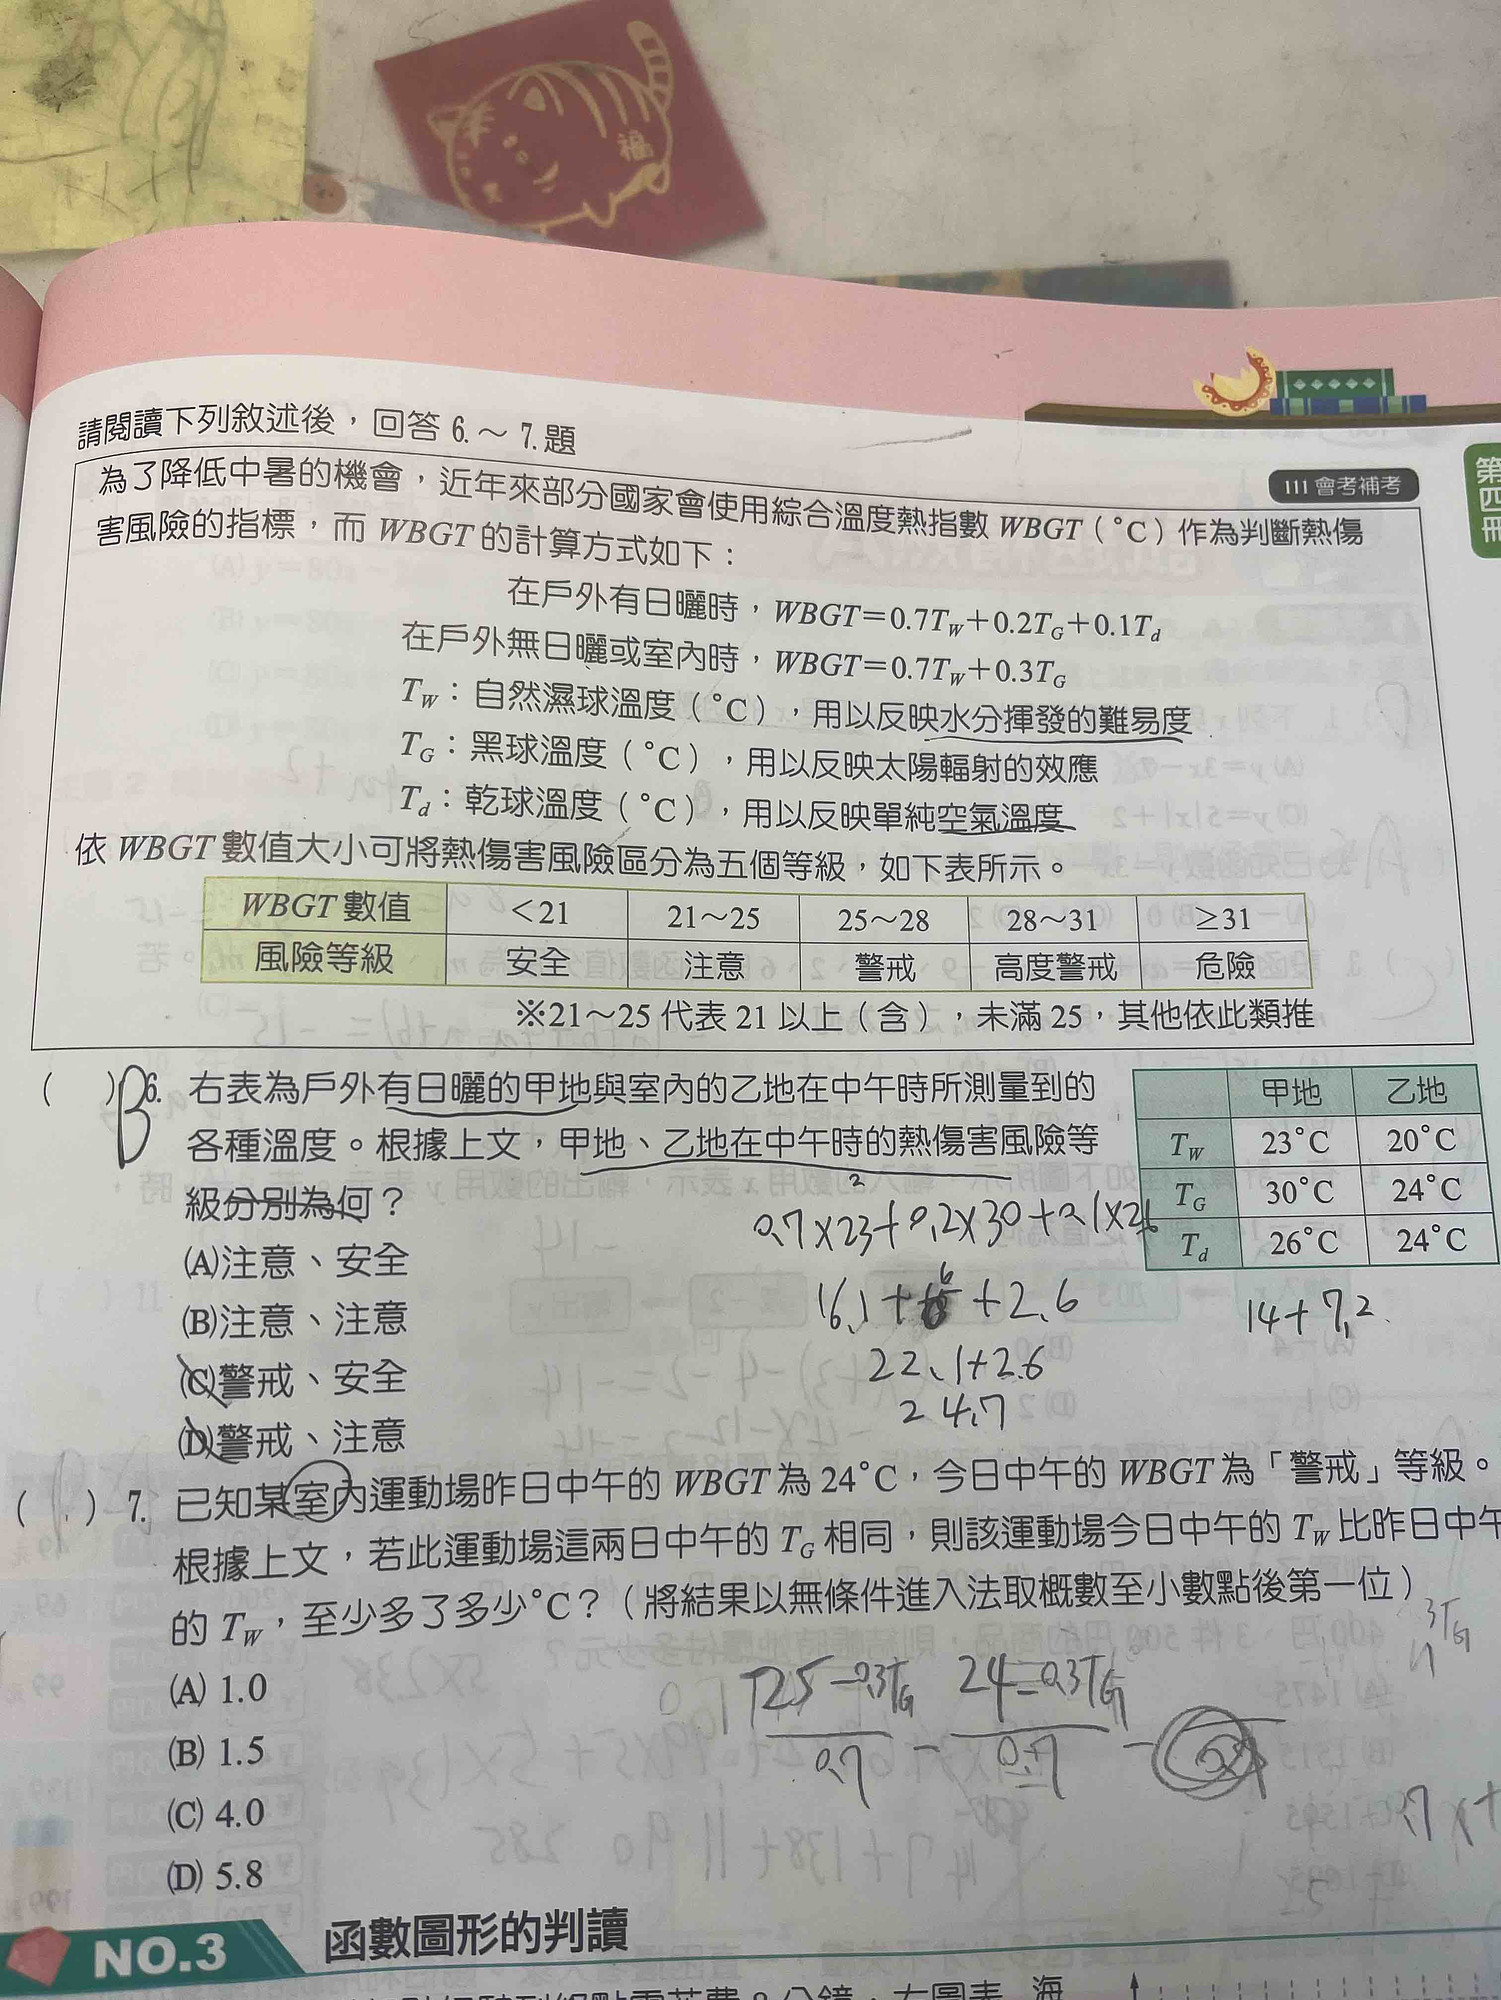 福
請閱讀下列敘述後，回答 6.～ 7.題
111 會考補考
第四冊
為了降低中暑的機會，近年來部分國家會使用綜合溫度熱指數 WBGT（°C）作為判斷熱傷
害風險的指標，而 WBGT 的計算方式如下：
在戶外有日曬時，WBGT＝0.7TW＋0.2TG＋0.1Td
在戶外無日曬或室內時，WBGT＝0.7TW＋0.3TG
TW：自然濕球溫度（°C），用以反映水分揮發的難易度
TG：黑球溫度（°C），用以反映太陽輻射的效應
Td：乾球溫度（°C），用以反映單純空氣溫度
依 WBGT 數值大小可將熱傷害風險區分為五個等級，如下表所示。
WBGT 數值 ＜21 21～25 25～28 28～31 ≥31
風險等級 安全 注意 警戒 高度警戒 危險
※21～25 代表 21 以上（含），未滿 25，其他依此類推
（ ）B 6. 右表為戶外有日曬的甲地與室內的乙地在中午時所測量到的
各種溫度。根據上文，甲地、乙地在中午時的熱傷害風險等
級分別為何？
甲地 乙地
TW 23°C 20°C
TG 30°C 24°C
Td 26°C 24°C
(A)注意、安全
(B)注意、注意
(C)警戒、安全
(D)警戒、注意
0.7×23+0.2×30+0.1×26
16.1+6+2.6
22.1+2.6
24.7
14+7.2
（ ）7. 已知某室內運動場昨日中午的 WBGT 為 24°C，今日中午的 WBGT 為「警戒」等級。
根據上文，若此運動場這兩日中午的 TG 相同，則該運動場今日中午的 TW 比昨日中午
的 TW，至少多了多少°C？（將結果以無條件進入法取概數至小數點後第一位）
(A) 1.0
(B) 1.5
(C) 4.0
(D) 5.8
25-0.3TG 24-0.3TG
0.7 - 0.7 -
3TG
NO.3 函數圖形的判讀